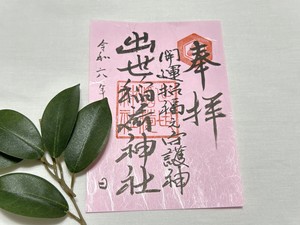 奉拝
開運招福之守護神
出世稲荷神社
令和六八年 日